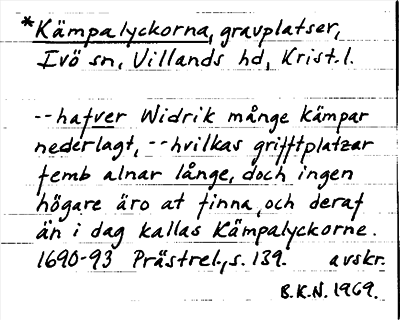 *Kämpalyckorna, gravplatser,
Ivö sn, Villands hd, Krist. l.
--hafver Widrik månge kämpar
nederlagt, --hvilkas grifftplatzar
femb alnar långe, doch ingen
högare äro at finna, och deraf
än i dag kallas Kämpalyckorne.
1690-93 Prästrel., s. 139. avskr.
B.K.N. 1969.